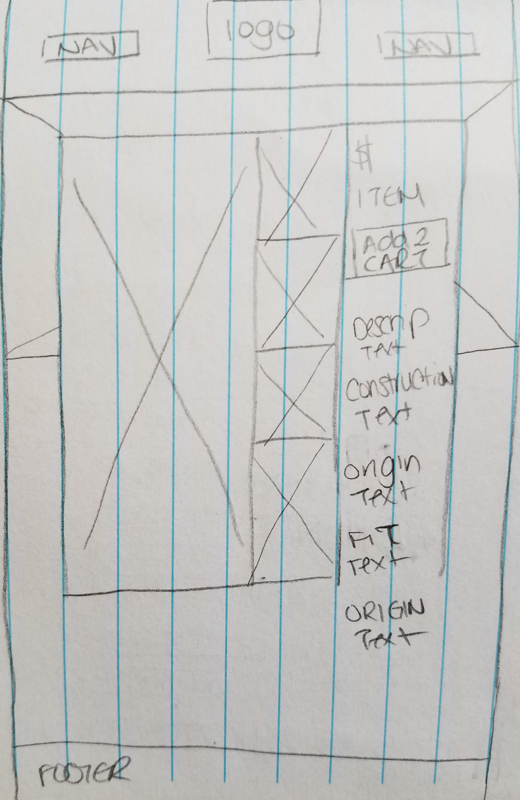 NAV
logo
NAV
$
ITEM
Add 2
CART
Descrip
Text
Construction
Text
Origin
Text
FIT
Text
ORIGIN
Text
FOOTER